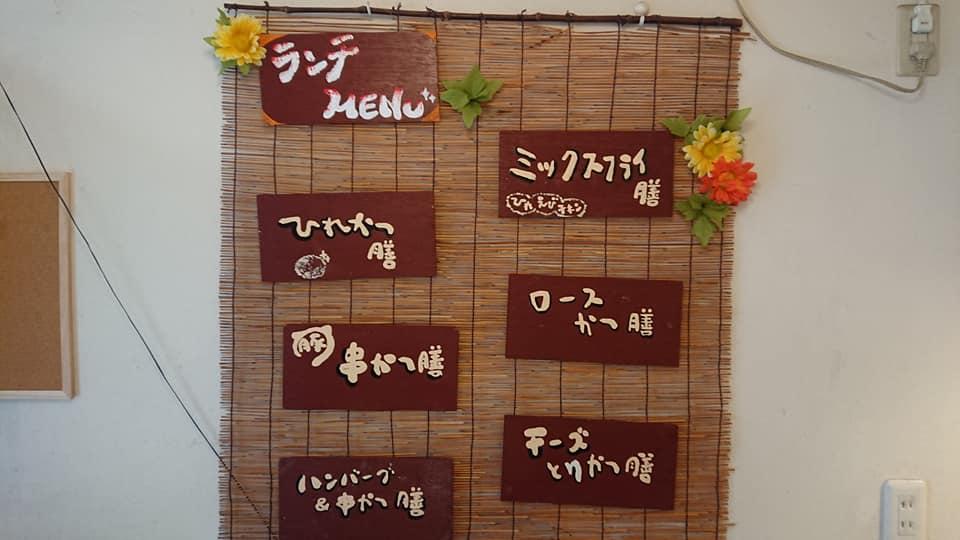 ランチ
MENU
ひれかつ
膳
豚 串かつ膳
ハンバーグ
&串かつ膳
ミックスフライ
膳
ひれ えび チキン
ロース
かつ膳
チーズ
とりかつ膳